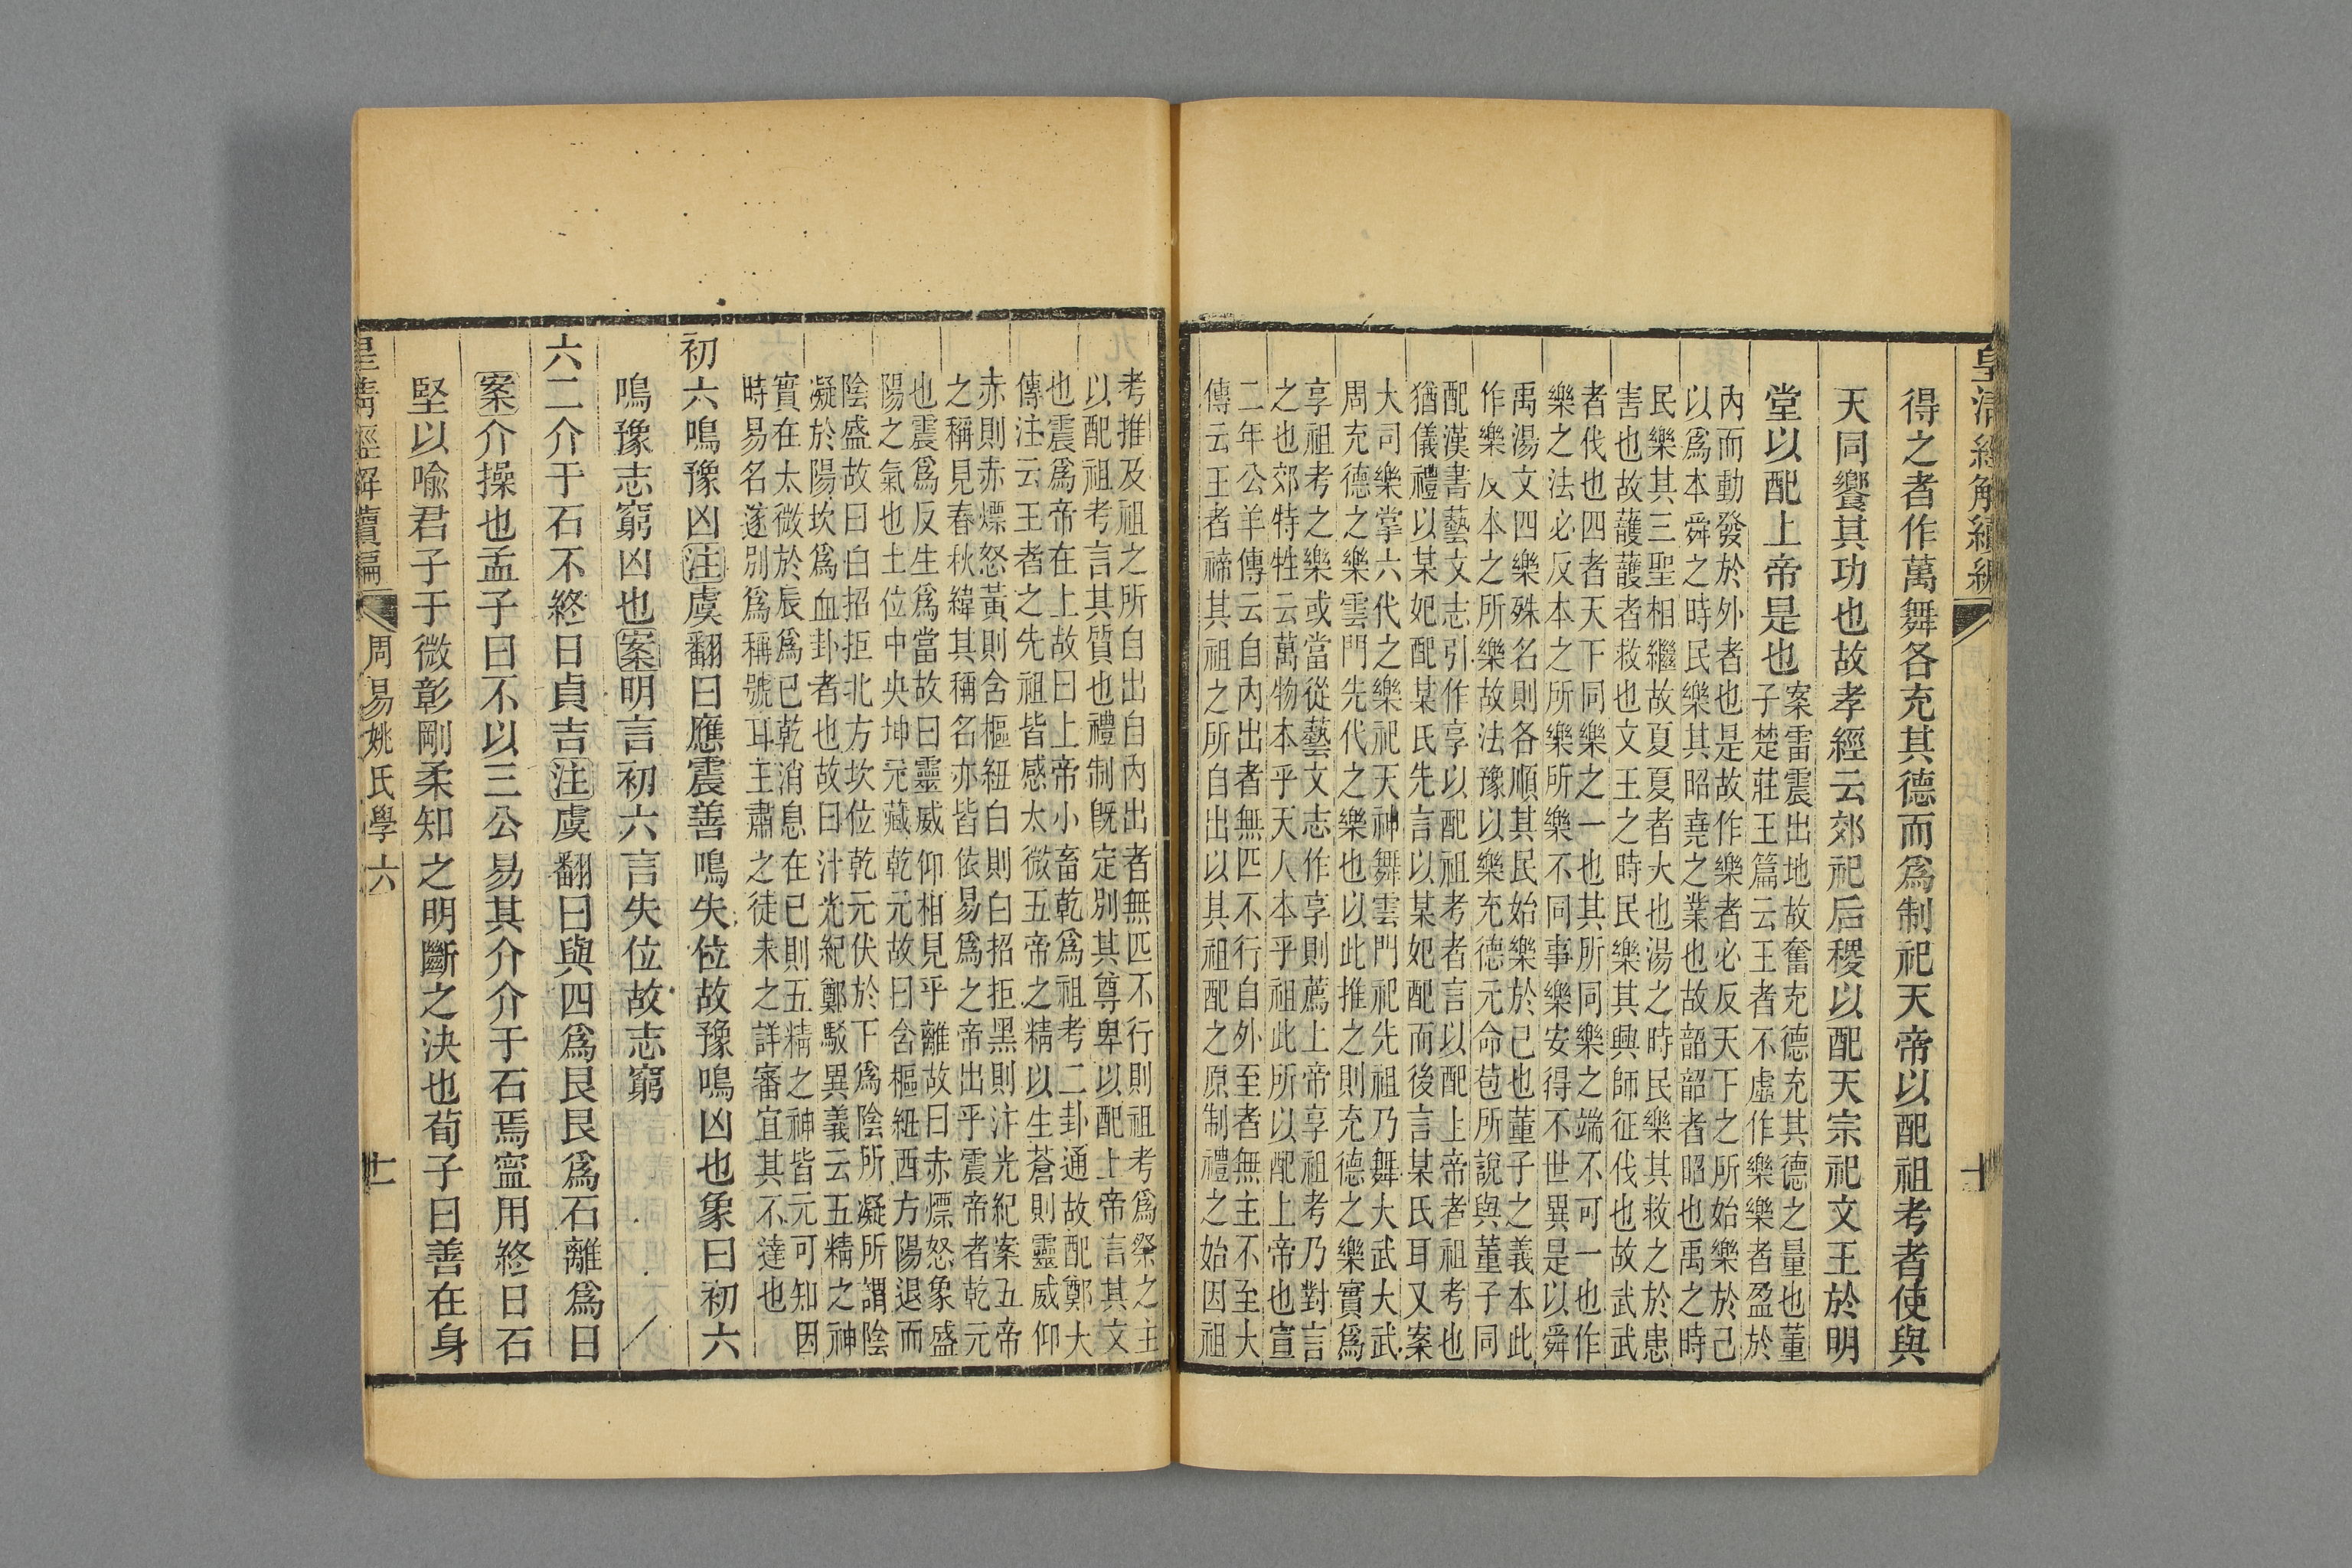 皇清經解續編
十
得之者作萬舞各充其德而爲制祀天帝以配祖考者使與
天同饗其功也故孝經云郊祀后稷以配天宗祀文王於明
堂以配上帝是也
案雷震出地故奮充德充其德之量也董
子楚莊王篇云王者不虛作樂樂者盈於
內而動發於外者也是故作樂者必反天下之所始樂於己
以爲本舜之時民樂其昭堯之業也故韶韶者昭也禹之時
民樂其三聖相繼故夏夏者大也湯之時民樂其救之於患
害也故頀頀者救也文王之時民樂其興師征伐也故武武
者伐也四者天下同樂之一也其所同樂之端不可一也作
樂之法必反本之所樂所樂不同事樂安得不世異是以舜
禹湯文四樂殊名則各順其民始樂於己也董子之義本此
作樂反本之所樂故法豫以樂充德元命苞所說與董子同
配漢書藝文志引作享以配祖考者言以配上帝者祖考也
猶儀禮以某妃配某氏先言以某妃配而後言某氏耳又案
大司樂掌六代之樂祀天神舞雲門祀先祖乃舞大武大武
周充德之樂雲門先代之樂也以此推之則充德之樂實爲
享祖考之樂或當從藝文志作享則薦上帝享祖考乃對言
之也郊特牲云萬物本乎天人本乎祖此所以配上帝也宣
二年公羊傳云自內出者無匹不行自外至者無主不至大
傳云王者禘其祖之所自出以其祖配之原制禮之始因祖
考推及祖之所自出自內出者無匹不行則祖考爲祭之主
以配祖考言其質也禮制旣定別其尊卑以配上帝言其文
也震爲帝在上故曰上帝小畜乾爲祖考二卦通故配鄭大
傳注云王者之先祖皆感太微五帝之精以生蒼則靈威仰
赤則赤熛怒黃則含樞紐白則白招拒黑則汁光紀案五帝
之稱見春秋緯其稱名亦皆依易爲之帝出乎震帝者乾元
也震爲反生爲當故曰靈威仰相見乎離故曰赤熛怒象盛
陽之氣也土位中央坤元藏乾元故曰含樞紐西方陽退而
陰盛故曰白招拒北方坎位乾元伏於下爲陰所凝所謂陰
凝於陽坎爲血卦者也故曰汁光紀鄭駁異義云五精之神
實在太微於辰爲巳乾消息在巳則五精之神皆元可知因
時易名遂別爲稱號耳王肅之徒未之詳審宜其不達也
初六鳴豫凶注虞翻曰應震善鳴失位故豫鳴凶也象曰初六
鳴豫志窮凶也案明言初六言失位故志窮
六二介于石不終日貞吉注虞翻曰與四爲艮艮爲石離爲日
案介操也孟子曰不以三公易其介介于石焉寍用終日石
堅以喻君子于微彰剛柔知之明斷之決也荀子曰善在身
皇清經解續編
周易姚氏學六
十一